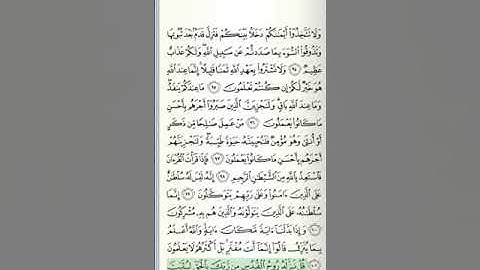 وَلَا تَتَّخِذُوٓا۟ أَيْمَٰنَكُمْ دَخَلًۢا بَيْنَكُمْ فَتَزِلَّ قَدَمٌۢ بَعْدَ ثُبُوتِهَا
وَتَذُوقُوا۟ ٱلسُّوٓءَ بِمَا صَدَدتُّمْ عَن سَبِيلِ ٱللَّهِ وَلَكُمْ عَذَابٌ
عَظِيمٌ ٩٤ وَلَا تَشْتَرُوا۟ بِعَهْدِ ٱللَّهِ ثَمَنًا قَلِيلًا إِنَّمَا عِندَ ٱللَّهِ
هُوَ خَيْرٌ لَّكُمْ إِن كُنتُمْ تَعْلَمُونَ ٩٥ مَا عِندَكُمْ يَنفَدُ
وَمَا عِندَ ٱللَّهِ بَاقٍ وَلَنَجْزِيَنَّ ٱلَّذِينَ صَبَرُوٓا۟ أَجْرَهُم بِأَحْسَنِ
مَا كَانُوا۟ يَعْمَلُونَ ٩٦ مَنْ عَمِلَ صَٰلِحًا مِّن ذَكَرٍ
أَوْ أُنثَىٰ وَهُوَ مُؤْمِنٌ فَلَنُحْيِيَنَّهُۥ حَيَوٰةً طَيِّبَةً وَلَنَجْزِيَنَّهُمْ
أَجْرَهُم بِأَحْسَنِ مَا كَانُوا۟ يَعْمَلُونَ ٩٧ فَإِذَا قَرَأْتَ ٱلْقُرْءَانَ
فَٱسْتَعِذْ بِٱللَّهِ مِنَ ٱلشَّيْطَٰنِ ٱلرَّجِيمِ ٩٨ إِنَّهُۥ لَيْسَ لَهُۥ سُلْطَٰنٌ
عَلَى ٱلَّذِينَ ءَامَنُوا۟ وَعَلَىٰ رَبِّهِمْ يَتَوَكَّلُونَ ٩٩ إِنَّمَا
سُلْطَٰنُهُۥ عَلَى ٱلَّذِينَ يَتَوَلَّوْنَهُۥ وَٱلَّذِينَ هُم بِهِۦ مُشْرِكُونَ
١٠٠ وَإِذَا بَدَّلْنَآ ءَايَةً مَّكَانَ ءَايَةٍ وَٱللَّهُ أَعْلَمُ
بِمَا يُنَزِّلُ قَالُوٓا۟ إِنَّمَآ أَنتَ مُفْتَرٍۭ بَلْ أَكْثَرُهُمْ لَا يَعْلَمُونَ
١٠١ قُلْ نَزَّلَهُۥ رُوحُ ٱلْقُدُسِ مِن رَّبِّكَ بِٱلْحَقِّ لِيُثَبِّتَ